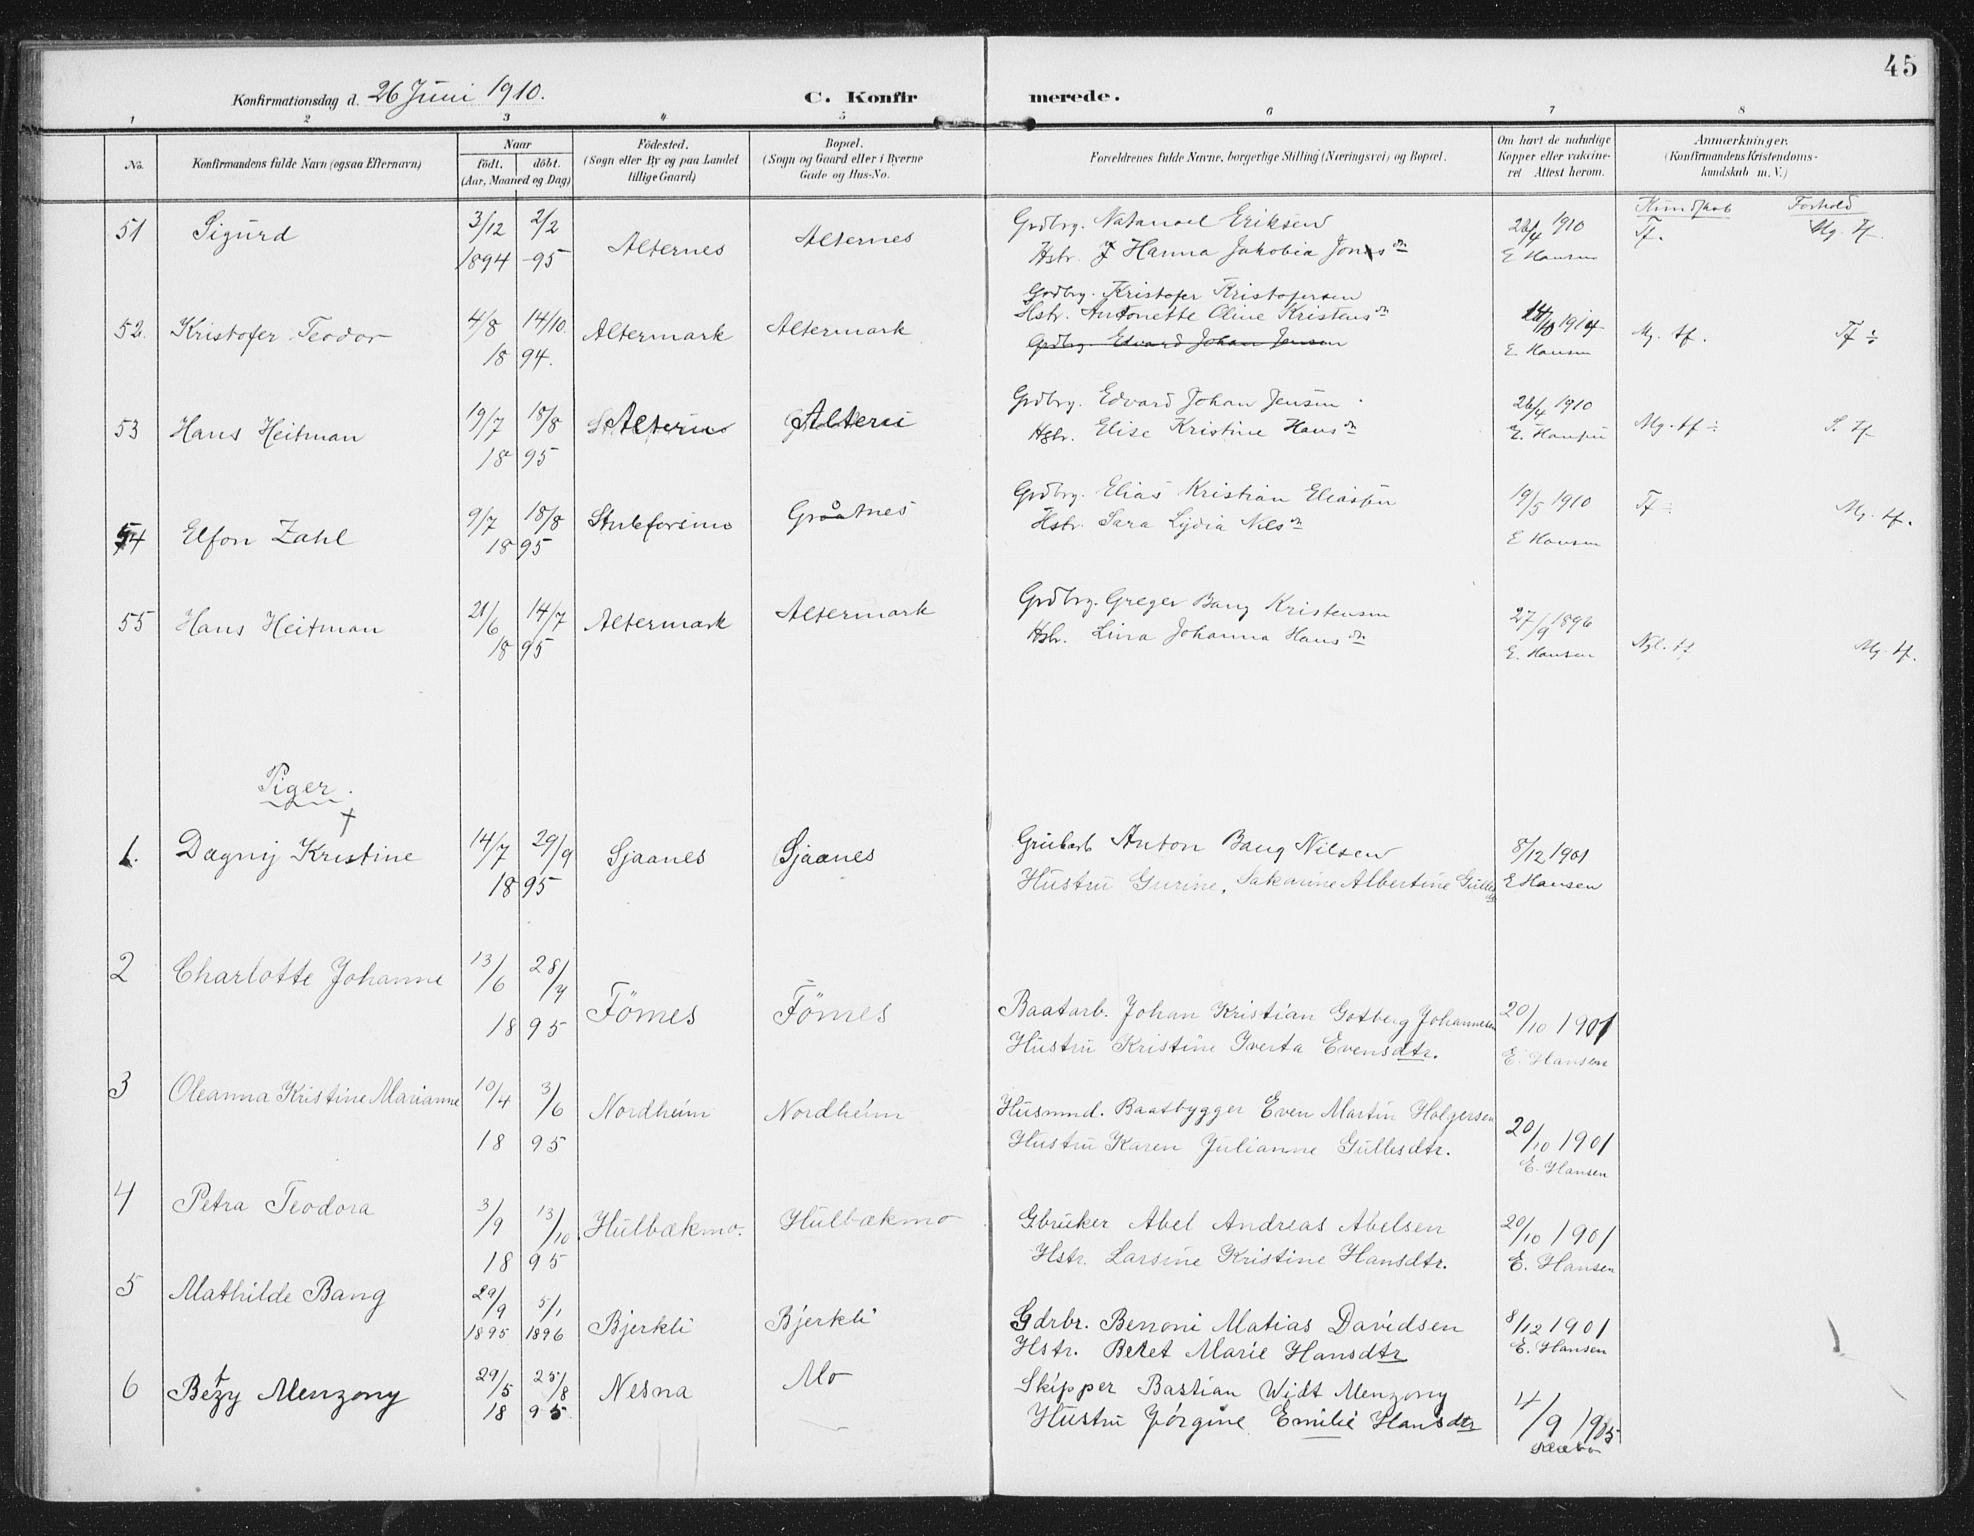 45
Konfirmationsdag d. 26 Juni 1910. C. Konfirmerede.
1 2 3 4 5 6 7 8
No. Konfirmandens fulde Navn (ogsaa Efternavn) Naar födt. döbt. (Aar, Maaned og Dag) Födested. (Sogn eller By og paa Landet tillige Gaard) Bopæl. (Sogn og Gaard eller i Byerne Gade og Hus-No. Forældrenes fulde Navne, borgerlige Stilling (Næringsvei) og Bopæl. Om havt de naturlige Kopper eller vaccineret Attest herom. Anmærkninger. (Konfirmandens Kristendomskundskab m. V.)
Kundskab Forhold
51 Sigurd 3/12 1894 2/2 -95 Alternes Alternes Grdbrg. Natanael Eriksen 26/4 1910 Tf. Mg. tf.
Hstr. Hanna Jakobia Jonsdr E Hansen
Grdbrg. Kristofer Kristofersen
52. Kristofer Teodor 4/8 14/10 1894. Altermark Altermark Hstr. Antonette Oline Kristensdr Mg. tf. Tf ÷
Grdbrg Edvard Johan Jensen E. Hansen
53 Hans Heitman 19/7 18/8 1895 Alteren Grdbrg. Edvard Johan Jensen 26/4 1910 Mg. tf ÷ S. tf
Hstr. Elise Kristine Hansdr E. Hansen
54 Elfon Zahl 9/7 18/8 1895 Stuleforsmo Graatnes Grdbrg. Elias Kristian Eliassen 19/5 1910 Tf ÷ Mg. tf.
Hstr. Sara Lydia Nilsdr E Hansen
55 Hans Heitman 21/6 14/7 1895 Altermark Altermark Grdbrg. Greger Bang Kristensen 27/9 1896 Ngl. tf Mg. tf.
Hstr. Lina Johanna Hansdr E. Hansen
Piger.
1. Dagny Kristine 14/7 29/9 1895 Sjaanes Sjaanes Grubarb Anton Bang Nilsen 8/12 1901
Hustru Gurine, Sakarine Albertine E Hansen
2 Charlotte Johanne 13/6 28/7 1895 Förnes Förnes Baatarb. Johan Kristian Gotberg Johannesen 20/10 1901
Hustru Kristine Iverta Evensdtr. E. Hansen
3 Oleanna Kristine Marianne 10/4 3/6 1895 Nordheim Nordheim Husmnd. Baatbygger Even Martin Holgersen 20/10 1901
Hustru Karen Julianne Gullesdtr. E. Hansen
4 Petra Teodora 3/9 13/10 1895 Hulbækmo. Hulbækmo Gbruker Abel Andreas Abelsen 20/10 1901
Hstr. Larsine Kristine Hansdtr. E. Hansen
5 Mathilde Bang 29/9 1895 5/1 1896 Bjerkli Bjerkli Gdrbr. Benoni Matias Davidsen 8/12 1901
Hstr. Beret Marie Hansdtr E. Hansen
6 Betzy Menzony 29/5 25/8 1895 Nesna Mo Skipper Bastian Widt Menzony 4/9 1905
Hustru Jørgine Emilie Hansdtr